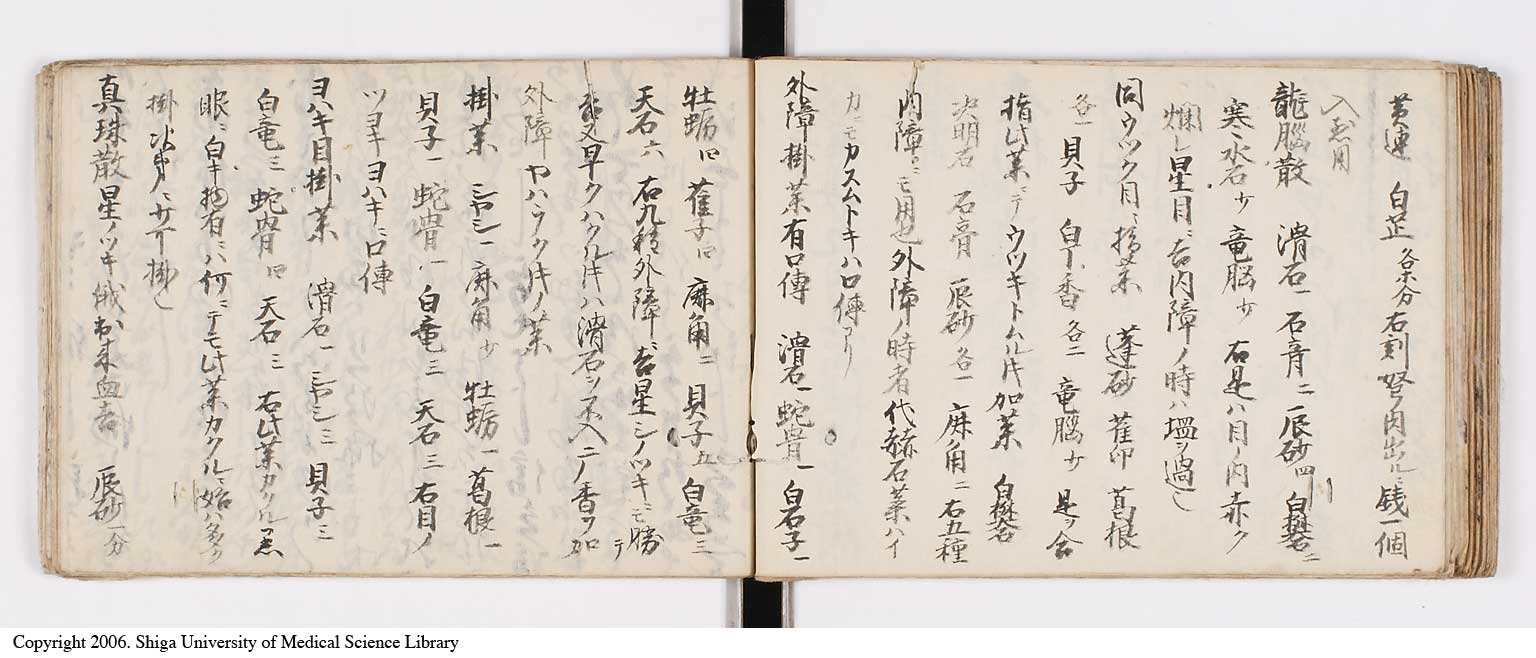 黄連 白芷 各等分 右刻 努肉出ルニ銭一個
入 用
龍脳散 滑石一 石膏二 辰砂四 白礬石二
寒水石少 竜脳少 右是ハ目ノ内赤ク
爛レ星目ニ吉内障ノ時ハ塩ヲ過シ
同ウツク目ニ指薬 蓬砂 雀印 葛根
各一 貝子 白 香 各二 竜脳少 是ヲ合
指此薬ニテウツキトムル片加薬 白礬石
决明石 石膏 辰砂各一 麻角二 右五種
内障ニモ用也外障ノ時者代赭石薬ハイ
カニモカスムトキハ口傳アリ
外障掛薬有口傳 滑石一 蛇骨一 白石子一
牡蛎四 雀子四 麻角二 貝子五 白竜三
天石六 右九種外障ニ吉星シノツキニモ勝テ
又早クハクル片ハ滑石ヲ不入二ノ香ヲ加
外障ヤハラク片ノ薬
掛薬 シヤシ一 麻角少 牡蛎一 葛根一
貝子一 蛇骨一 白竜三 天石三 右目ノ
ツヨキヨハキニ口傳
ヨハキ目掛薬 滑石一 シヤシ三 貝子三
白竜三 蛇骨四 天石三 右此薬カクル
眼ニ白キ物有ニハ何ニテモ此薬カクルニ始ハ多ク
掛 次第ニサイ掛シ
真珠散 星ノツキ俄 出来血吉 辰砂一分
Copyright 2006. Shiga University of Medical Science Library